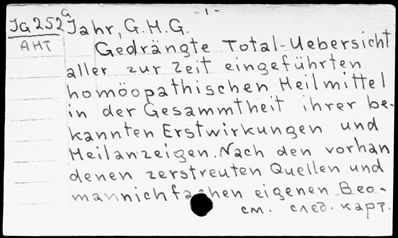 - 1 -
JG 252 G Jahr, G.H.G.
AHT Gedrängte Total-Uebersicht
aller zur Zeit eingeführten
homöopathischen Heilmittel
in der Gesammtheit ihrer be-
kannten Erstwirkungen und
Heilanzeigen. Nach den vorhan
denen zerstreuten Quellen und
mannichfachen eigenen Beo-
см. след. карт.